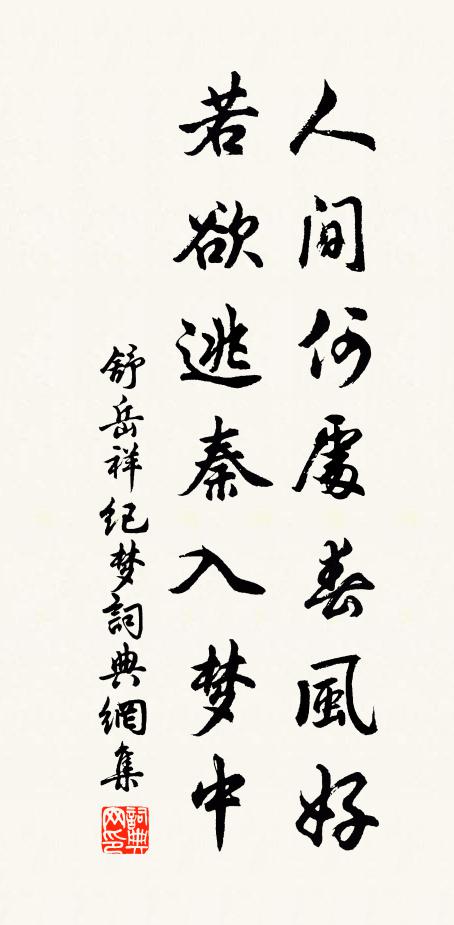 人间何處春風好
若欲逃秦入梦中
舒岳祥纪梦詞典網集
詞典网印